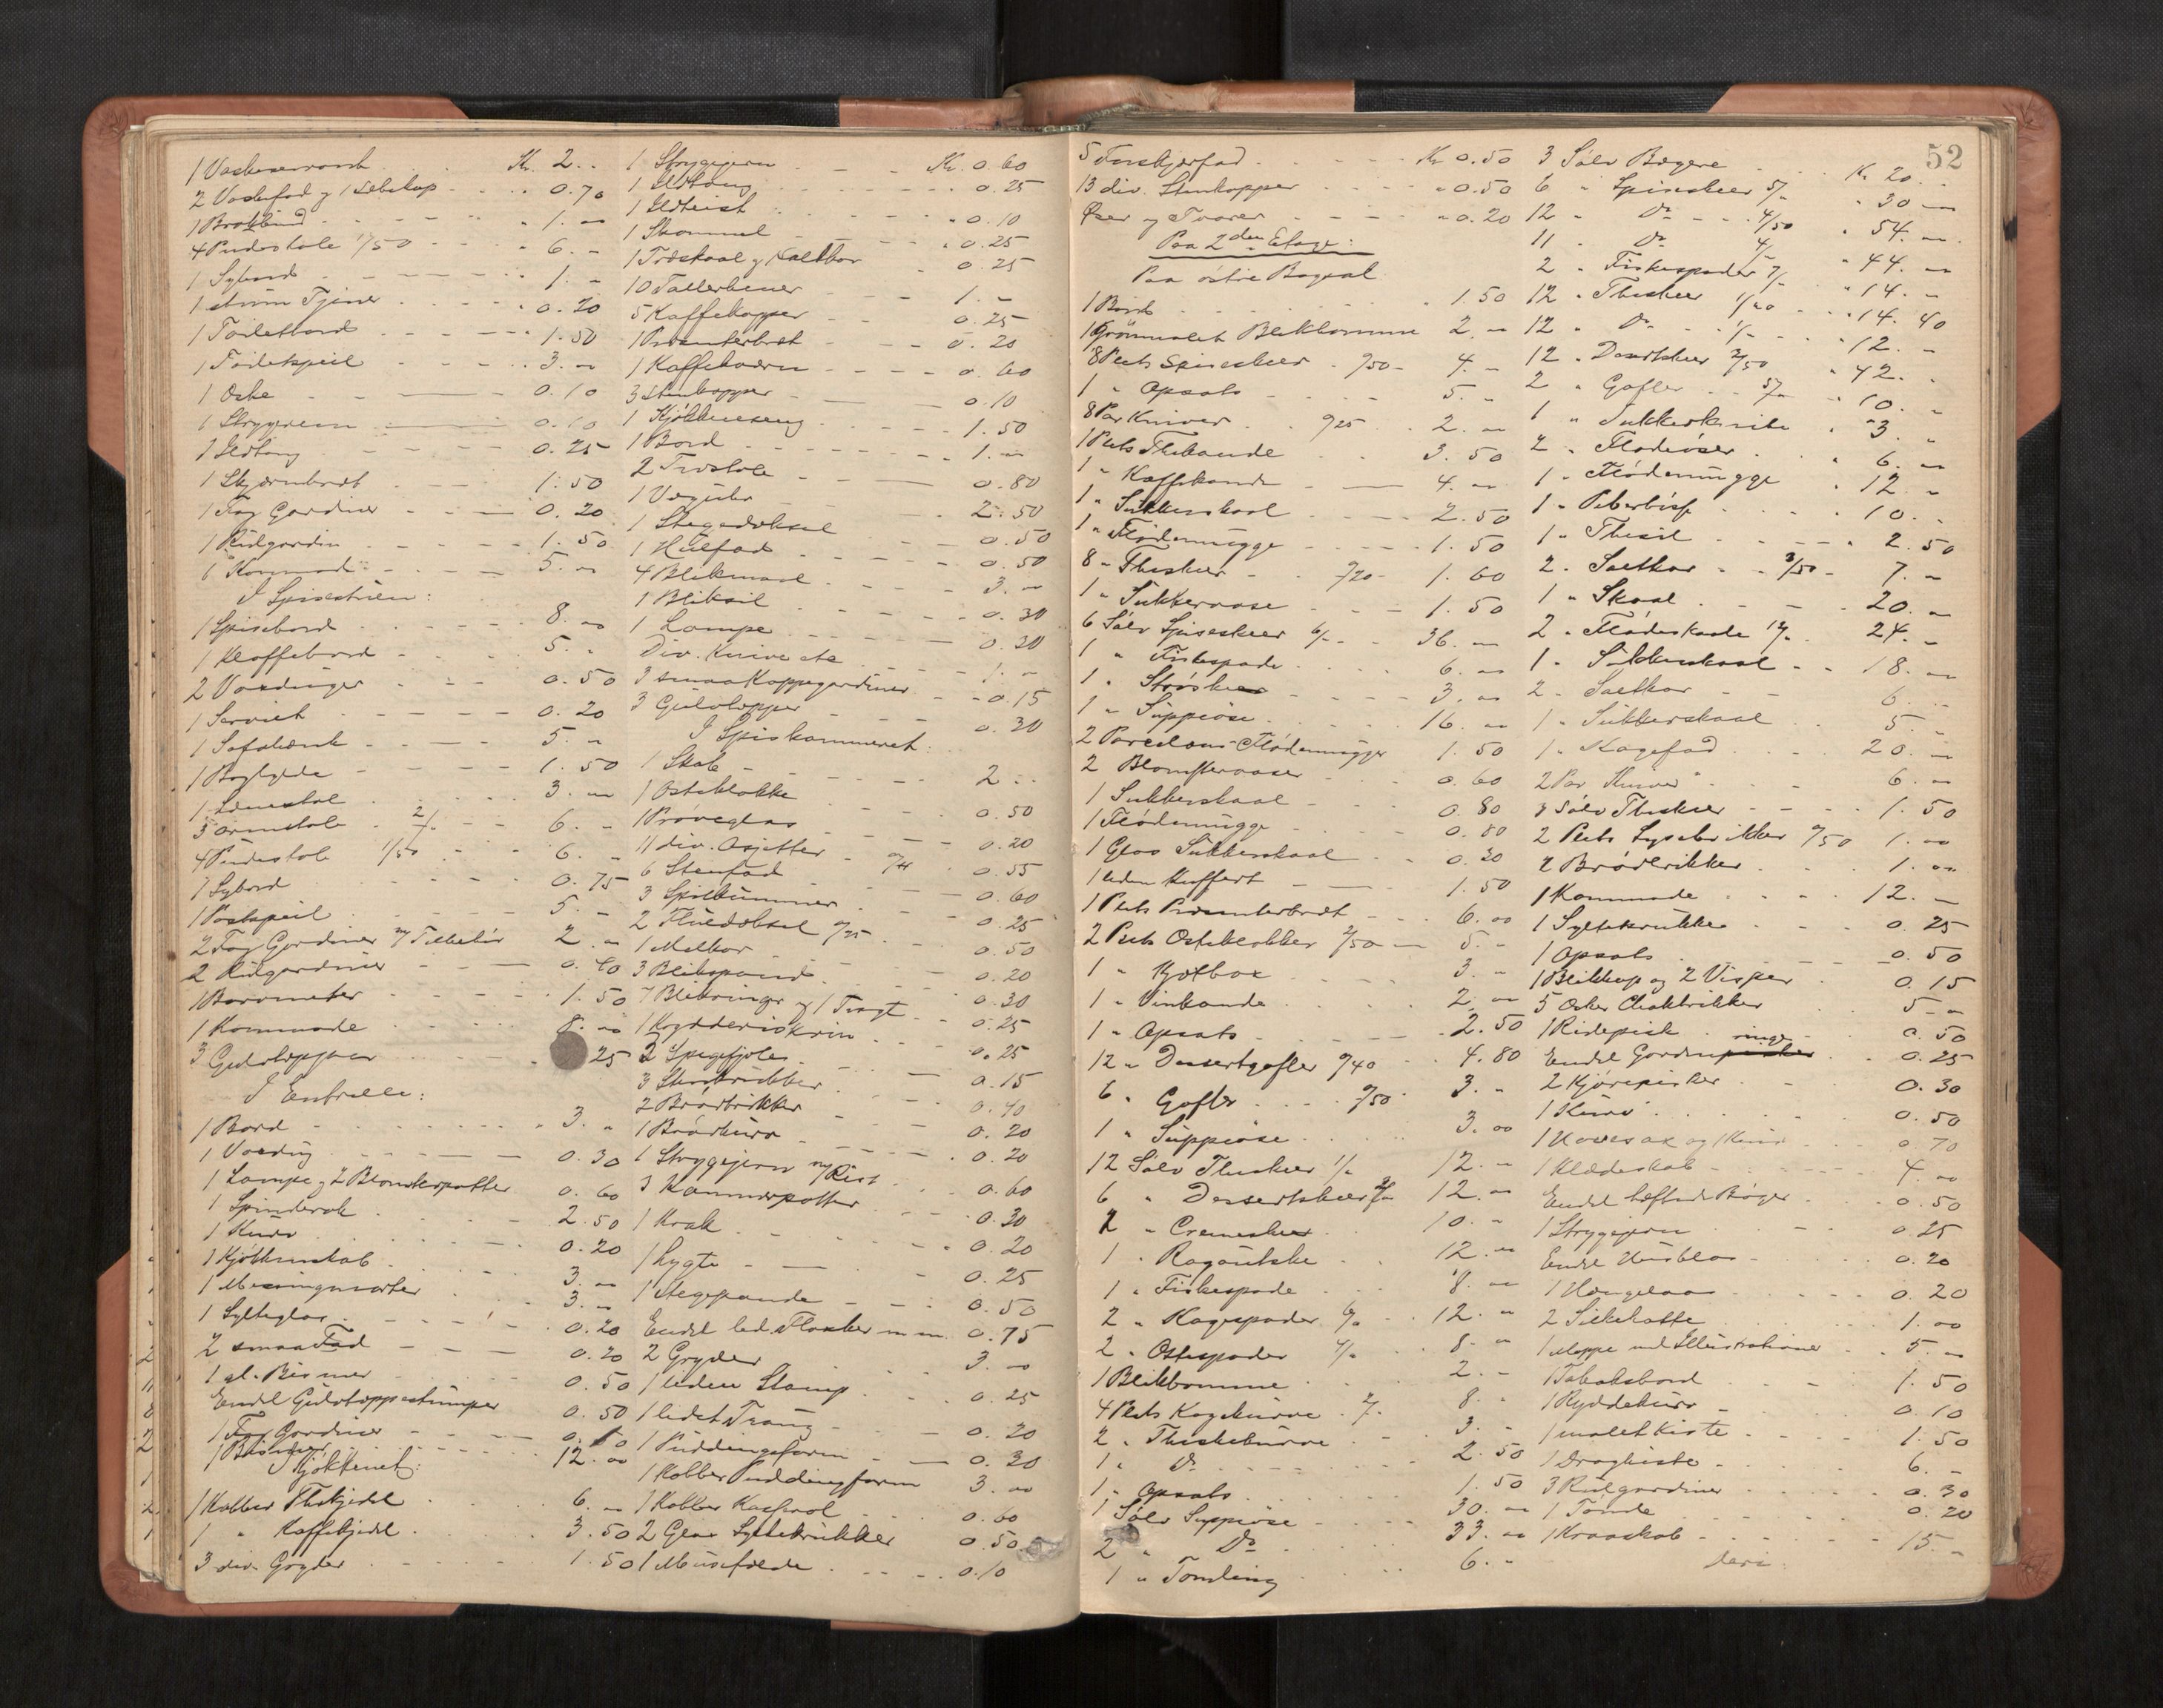 1 Vaskeservant Kr. 2. "
2 Vaskefad og 1 Sæbekop 0.70
1 Brokbind 1. "
4 Pindestole 1/50 6. "
1 Sybord 1. "
1 Tjener 0.20
1 Toiletbord 1.50
1 Toiletspeil 3. "
1 Æske 0.10
1 Strygejern 0.10
1 Ildtang 0.25
1 Skjærmbræt 1.50
1 Fag Gardiner 0.20
1 Rulgardin 1.50
1 Kommode 5. "
I Spisestuen:
1 Spisebord 8. "
1 Klaffebord 5. "
2 Voxduger 0.50
1 Serviet 0.20
1 Sofabænk 5. "
1 Boghylde 1.50
1 Lænestol 3. "
3 Armstole 2/" 6. "
4 Pindestole 1/50 6. "
1 Sybord 0.75
1 Vægspeil 5. "
2 Fag Gardiner m/ Tilbehør 2. "
2 Rulgardiner 0.40
1 Barometer 1.50
1 Kommode 8. "
3 Gulvtæpper 25
I Entreen:
1 Bord 3. "
1 Voxdug 0.30
1 Lampe og 2 Blomsterpotter 0.60
1 Spinderok 2.50
1 Kurv 0.20
1 Kjøkkenskab 3. "
1 Messingmorter 3. "
1 Sylteglas 0.20
2 smaa Fad 0.20
1 gl. Bismer 0.50
Endel Gulvtæppestumper 0.50
1 Fag Gardiner 0.10
1 Bismer 12. "
I Kjøkkenet:
1 Kobber Thekjedel 6. "
1 " Kaffekjedel 3.50
3 div. Gryder 1.50
1 Strygejern Kr. 0.60
1 Ildtang 0.25
1 Ildrist 0.10
1 Skammel 0.25
1 Træskaal og 1 Saltkar 0.25
10 Tallerkener 1. "
5 Kaffekopper 0.25
1 Præsenterbræt 0.20
1 Kaffekværn 0.60
3 Stenkopper 0.10
1 Kjøkkenseng 1.50
1 Bord 1. "
2 Træstole 0.80
1 Vægur 2.50
1 Stegedæksel 0.50
1 Hulfad 0.50
4 Blikmaal 3. "
1 Bliksil 0.30
1 Lampe 0.30
Div. Knive etc 1. "
3 smaa Kappegardiner 0.15
3 Gulvtæpper 0.30
I Spiskammeret:
1 Skab 2. "
1 Osteklokke 0.50
1 Prøveglas 0.20
11 div. Asjetter 0.55
6 Stenfad 0.60
3 Spølkummer 0.25
2 Fluedæksel 0/25 0.50
1 Melkar 0.20
3 Blikspand 0.30
7 Blikringe og 1 Tragt 0.25
1 Krydderiskrin 0.25
2 Spegefjøler 0.15
3 Stenkrukker 0.40
2 Brødbrikker 0.20
1 Brødkurv 0.20
1 Strygejern m/ Rist 0.60
3 Kammerpotter 0.30
1 Krak 0.20
1 Lygte 0.25
1 Stegepande 0.50
Endel led. Flasker m m 0.75
2 Gryder 3. "
1 liden Stamp 0.25
1 lidet Traug 0.20
1 Puddingsform 0.30
1 Kobber Puddingform 3. "
1 Kobber Kasserol 0.60
2 Glas Syltekrukker 0.50
1 Musefælde 0.10
52
5 Kr 0.50
13 div. Stenkopper " 0.50
Øser og Tvarer " 0.20
Paa 2den Etage:
Paa østre Bagsal
1 Bord 1.50
1 Grønmalet Blikkomme 2. "
8 Plets Spiseskeer 0/50 4. "
1 " Opsats 5. "
8 Par Kniver 0/25 2. "
1 Plets Thekande 3.50
1 " Kaffekande 4. "
1 " Sukkerskaal 2.50
1 " Flødemugge 1.50
8 " Theskeer 0/20 1.60
1 " Sukkervase 1.50
6 Sølv Spiseskeer 6/" 36. "
1 " Fiskespade 6. "
1 " Strøskee 3. "
1 " Suppeøse 16. "
2 Porcelæns-Flødemugger 1.50
2 Blomstervaser 0.60
1 Sukkerskaal 0.80
1 Flødemugge 0.80
1 Glas Sukkerskaal 0.30
1 liden Kuffert 1.50
1 Plets Præsenterbræt 6. "
2 Plets Osteklokker 2/50 5. "
1 " 3. "
1 " Vinkande 2. "
1 " Opsats 2.50
12 " Dessertgafler 0/40 4.80
6 " Gafler 0/50 3. "
1 " Suppeøse 3. "
12 Sølv Theskeer 1/" 12. "
6 " Dessertskeer 2/" 12. "
2 " Cremeskeer 10. "
1 " Ragoutske 12. "
1 " Fiskespade 8. "
2 " Kagespader 6/" 12. "
2 " Ostespader 4/" 8. "
1 Blikbomme 2. "
4 Plets Kagekurve 2/" 8. "
2 " 3. "
1 " Do 2.50
1 " Opsats 1.50
1 Sølv Suppeøse 30. "
2 " Do 33. "
1 " Tomling 6. "
3 Sølv Bægere Kr 20. "
6 " Spiseskeer 5/" " 30. "
12 " Do 4/50 " 54. "
11 " Do 4/ " 44. "
2 " Fiskespader 7/" " 14. "
12 " Theskeer 1/20 " 14.40
12 " Do 1/" " 12. "
12 " Dessertskeer 3/50 " 42. "
2 " Gafler 5/" 10. "
1 " Sukkerskrin " 3. "
2 " Flødeøser " 6. "
1 " Flødemugge " 12. "
1 " Peberbøsse 10. "
1 " Thesil 2.50
2 " Saltkar 3/50 7. "
1 " Skaal 20. "
2 " Flødeskaale 12/" 24. "
1 " Sukkerskaal 18. "
2 " Saltkar 6. "
1 " Sukkerskaal 5. "
1 " Kagefad 20. "
2 Par Kniver 6. "
3 Sølv Theskeer 1.50
2 Plets Lysebrikker 0/50 1. "
2 Brødbrikker 1. "
1 Kommode 12. "
1 Syltekrukke 0.25
1 Opsats 0.50
1 Blikkop og 2 Visper 0.15
5 5. "
1 Ridepisk 0.50
Endel Gardinringe 0.25
2 Kjørepisker 0.30
1 Kurv 0.50
1 og 1 Kniv 0.70
1 Klædeskab 4. "
Endel hæftede Bøger 0.50
1 Strygejern 0.25
Endel Husblas 0.20
1 Hængelaas 0.20
2 Silkehatte 1. "
1 Mappe med Illustrationer 5. "
1 Tobaksbord 1.50
1 Ryddekurv 0.10
1 malet Kiste 1.50
1 Dragkiste 6. "
3 Rulgardiner 0.30
1 Tønde 0.20
1 Kraaskab 15. "